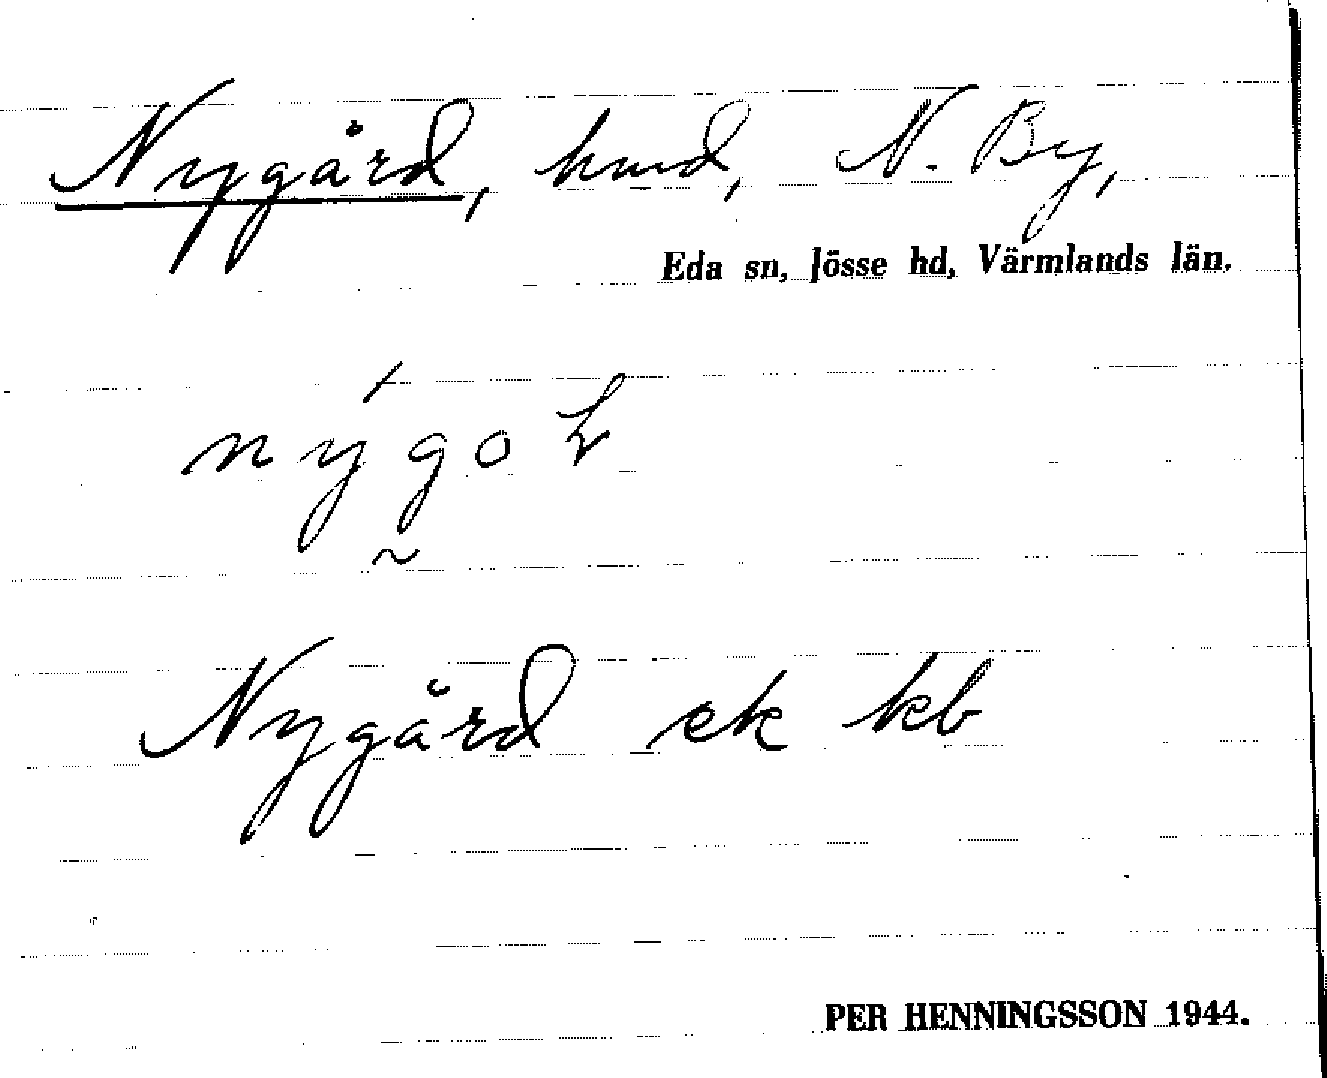 Nygård, hmd, N. By,
Eda sn, Jösse hd, Värmlands län.
Nygård ek kb
PER HENNINGSSON 1944.